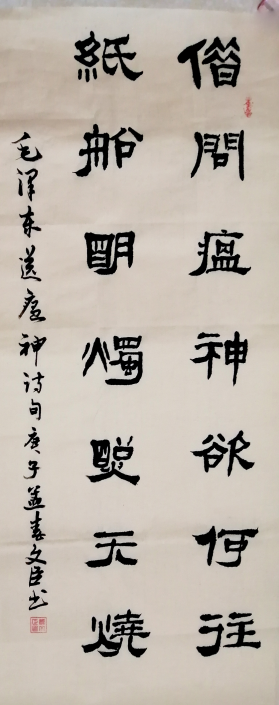 借問瘟神欲何往
紙船明燭照天燒
毛澤東送瘟神诗句庚子孟春文臣书